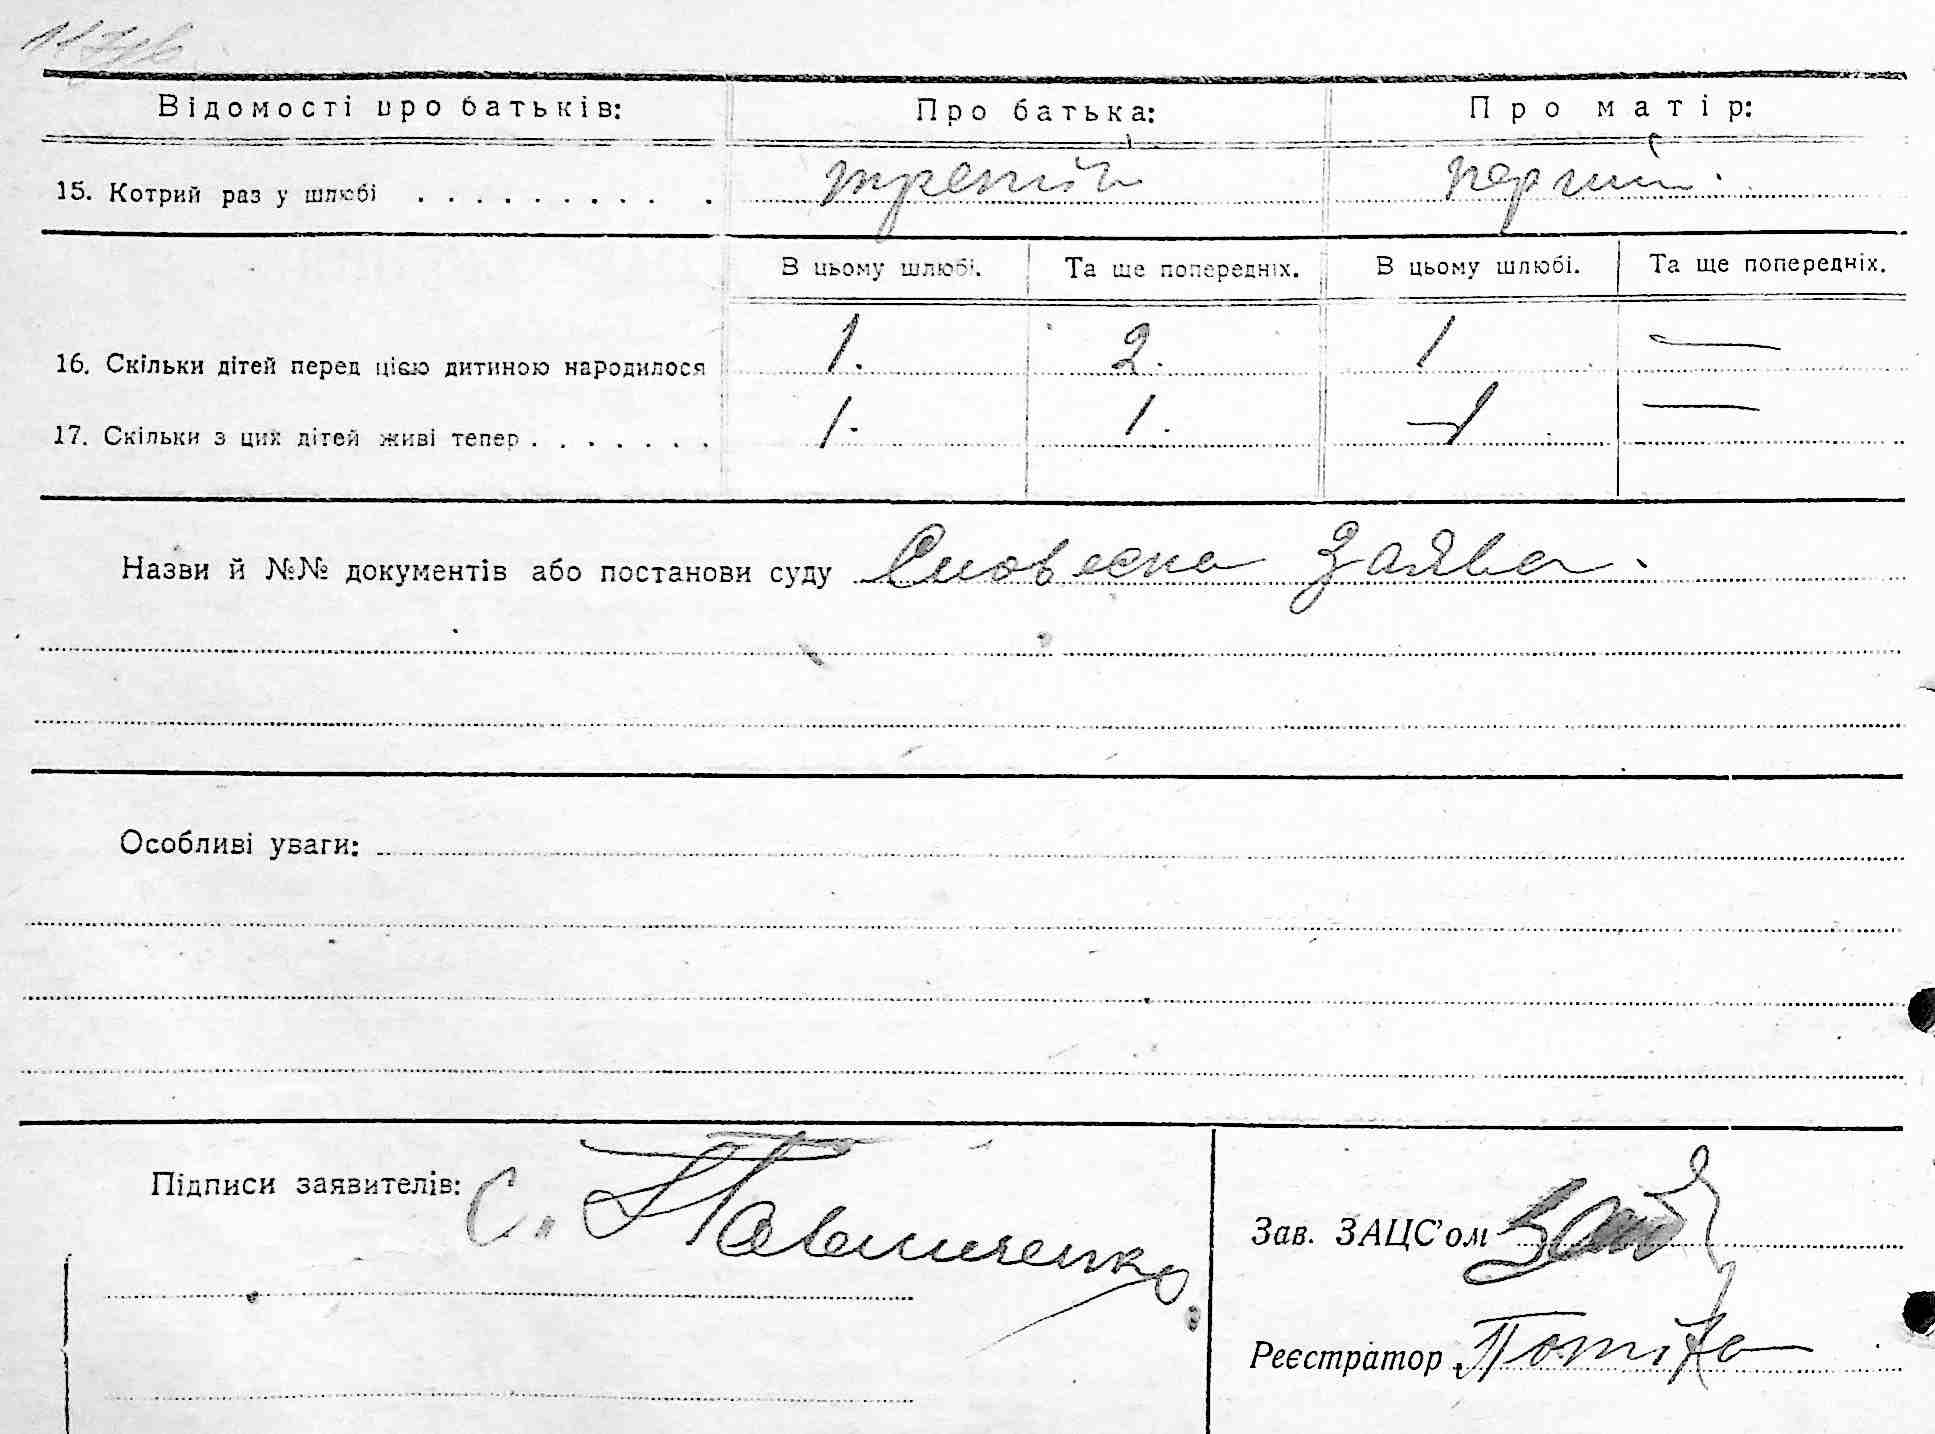 Відомості про батьків: Про батька: Про матір:
15. Котрий раз у шлюбі . . . . . . . . . . третій перший.
В цьому шлюбі. Та ще попередніх. В цьому шлюбі. Та ще попередніх.
16. Скільки дітей перед цією дитиною народилося 1. 2. 1 —
17. Скільки з цих дітей живі тепер . . . . . . . 1. 1. 1 —
Назви й №№ документів або постанови суду Словесна заява.
Особливі уваги:
Підписи заявителів: С. Павличенко.
Зав. ЗАЦС'ом
Реєстратор